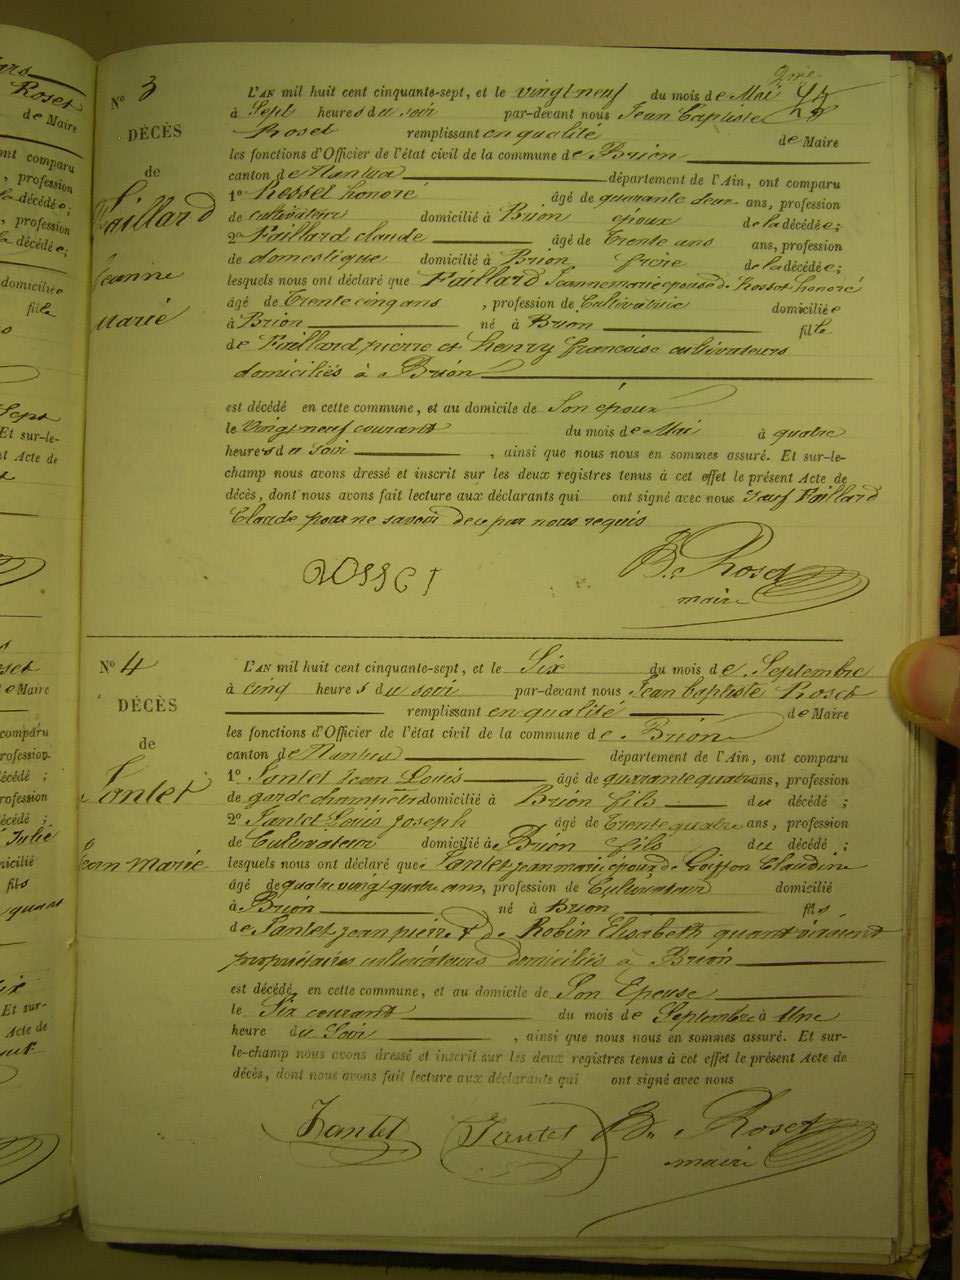 Nº 3
DÉCÈS
de
Faillard
Jeanne
Marié
L'AN mil huit cent cinquante-sept, et le vingt neuf du mois de Mai
à Sept heures du soir par-devant nous Jean Baptiste
Roset remplissant en qualité de Maire
les fonctions d'Officier de l'état civil de la commune de Brion
canton de Nantua département de l'Ain, ont comparu
1º Rosset honoré âgé de quarante deux ans, profession
de cultivateur domicilié à Brion époux de la décédée;
2º Faillard claude âgé de Trente ans ans, profession
de domestique domicilié à Brion frère de la décédée;
lesquels nous ont déclaré que Faillard Jeanne marie epouse de Rosset honoré
âgé de Trente cinq ans, profession de Cultivatrice domiciliée
à Brion né à Brion fille
de Faillard pierre et henry françoise cultivateurs
domiciliés à Brion
est décédé en cette commune, et au domicile de Son époux
le Vingt neuf courant du mois de Mai à quatre
heures du Soir, ainsi que nous nous en sommes assuré. Et sur-le-
champ nous avons dressé et inscrit sur les deux registres tenus à cet effet le présent Acte de
décès, dont nous avons fait lecture aux déclarants qui ont signé avec nous Sauf Faillard
Claude pour ne savoir de ce par nous requis
ROSSET
B. Roset
maire
Nº 4
DÉCÈS
de
Tantet
Jean Marié
L'AN mil huit cent cinquante-sept, et le Six du mois de Septembre
à cinq heures du soir par-devant nous Jean baptiste Roset
remplissant en qualité de Maire
les fonctions d'Officier de l'état civil de la commune de Brion
canton de Nantua département de l'Ain, ont comparu
1º Tantet Jean Louis âgé de quarante quatre ans, profession
de garde champêtre domicilié à Brion fils du décédé;
2º Tantet Louis Joseph âgé de Trente quatre ans, profession
de Cultivateur domicilié à Brion fils du décédé;
lesquels nous ont déclaré que Tantet jean marie époux de Goiffon Claudine
âgé de quatre vingt quatre ans, profession de Cultivateur domicilié
à Brion né à Brion fils
de Tantet jean pierre & de Robin Elisabeth quant vivaient
propriétaires cultivateurs domiciliés à Brion
est décédé en cette commune, et au domicile de Son Epouse
le Six courant du mois de Septembre à Une
heure du Soir, ainsi que nous nous en sommes assuré. Et sur-
le-champ nous avons dressé et inscrit sur les deux registres tenus à cet effet le présent Acte de
décès, dont nous avons fait lecture aux déclarants qui ont signé avec nous
Tantet Tantet B. Roset
maire